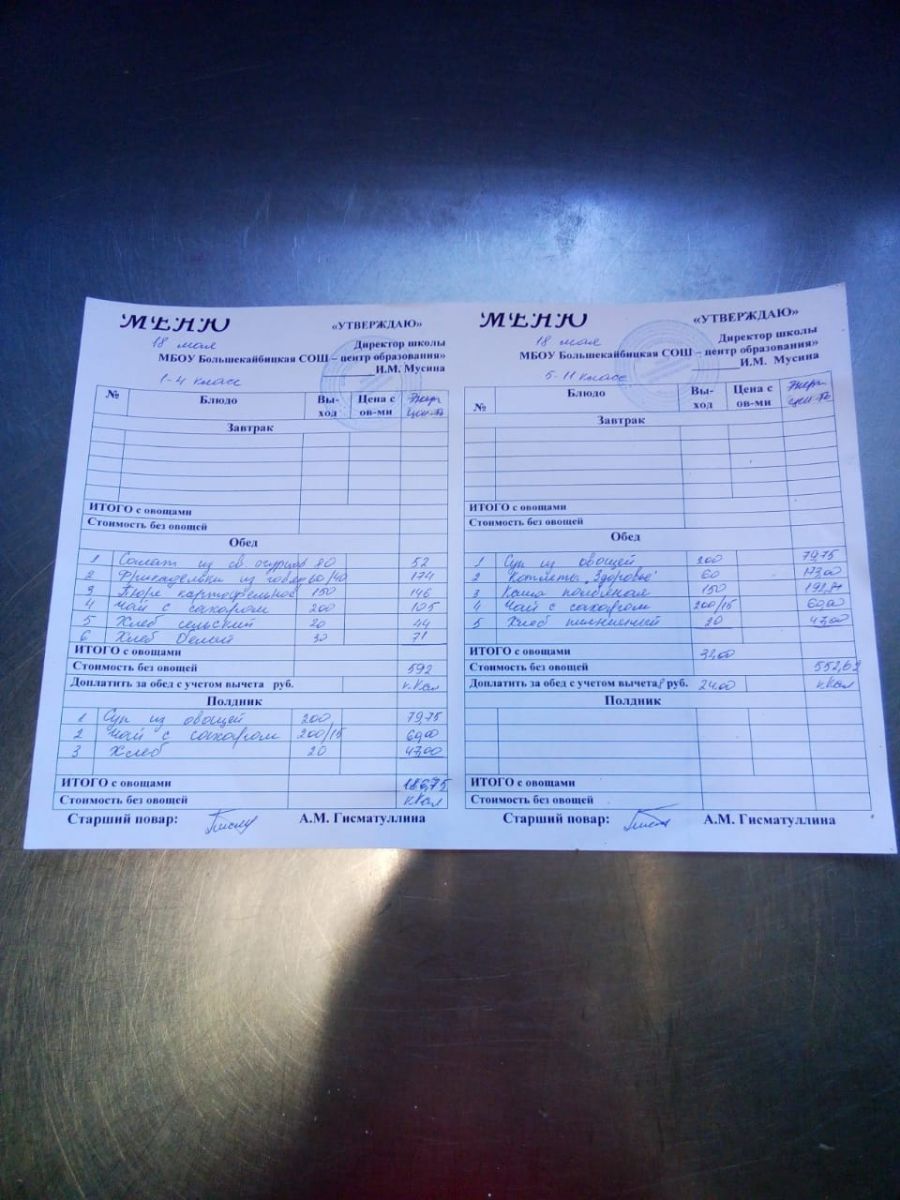 МЕНЮ
«УТВЕРЖДАЮ»
18 мая
Директор школы
МБОУ Большекайбицкая СОШ – центр образования»
И.М. Мусина
1-4 класс
№ Блюдо Вы-ход Цена с ов-ми Энерг цен-ть
Завтрак
ИТОГО с овощами
Стоимость без овощей
Обед
1 Салат из св. огурцов 80 52
2 Фрикадельки из говяд 60/40 174
3 Пюре картофельное 150 146
4 Чай с сахаром 200 105
5 Хлеб сельский 20 44
6 Хлеб белый 30 71
ИТОГО с овощами
Стоимость без овощей 592
Доплатить за обед с учетом вычета руб. кКал
Полдник
1 Суп из овощей 200 79,75
2 Чай с сахаром 200/15 60,00
3 Хлеб 20 47,00
ИТОГО с овощами 186,75
Стоимость без овощей кКал
Старший повар: А.М. Гисматуллина
МЕНЮ
«УТВЕРЖДАЮ»
18 мая
Директор школы
МБОУ Большекайбицкая СОШ – центр образования»
И.М. Мусина
5-11 класс
№ Блюдо Вы-ход Цена с ов-ми Энерг цен-ть
Завтрак
ИТОГО с овощами
Стоимость без овощей
Обед
1 Суп из овощей 200 79,75
2 Котлеты „Здоровье" 60 173,00
3 Каша 150
4 Чай с сахаром 200/15 60,00
5 Хлеб пшеничный 20 47,00
ИТОГО с овощами 32,00
Стоимость без овощей 552,62
Доплатить за обед с учетом вычета, руб. 24,00 кКал
Полдник
ИТОГО с овощами
Стоимость без овощей
Старший повар: А.М. Гисматуллина